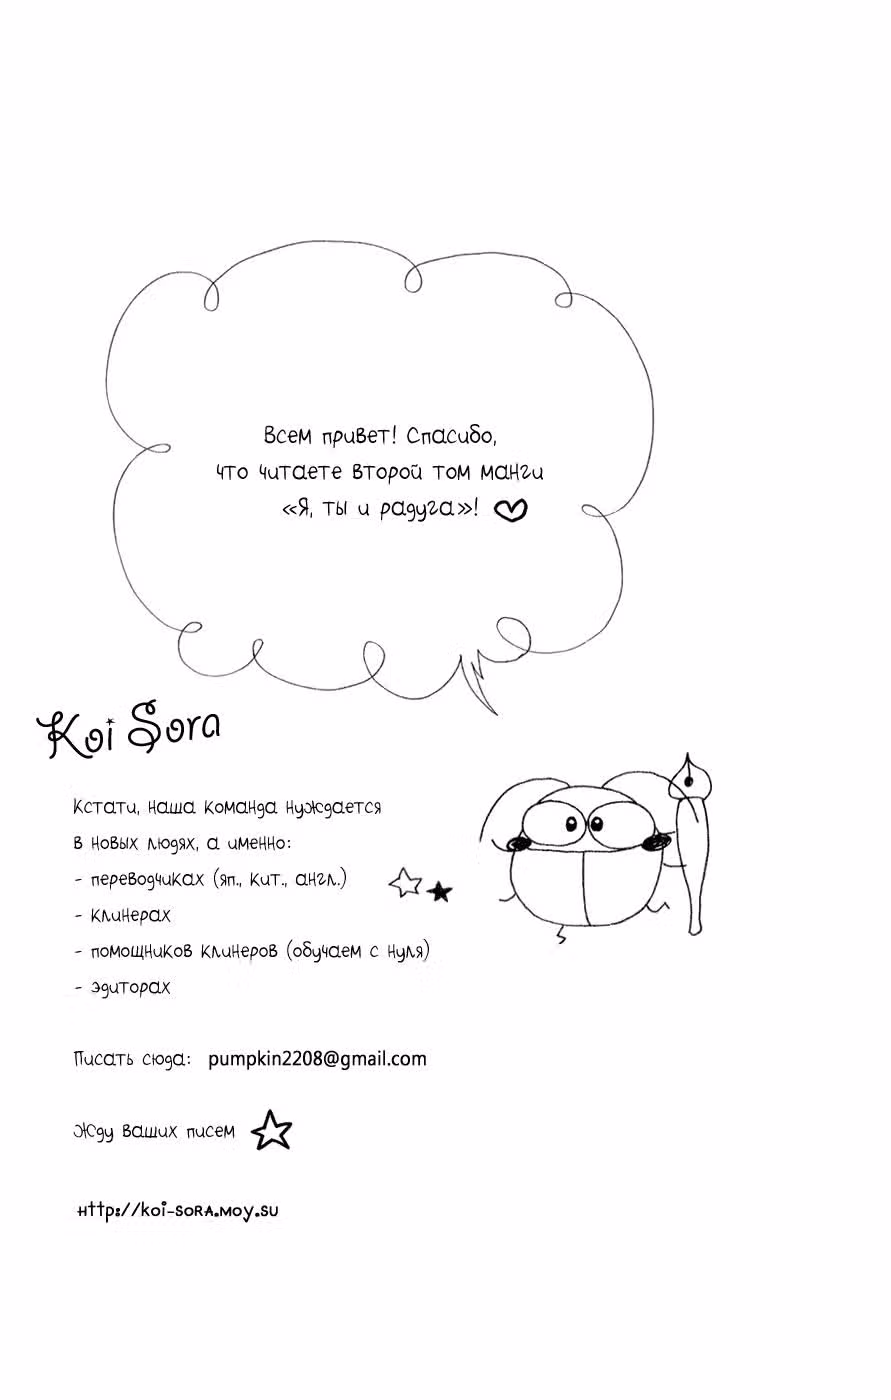 Всем привет! Спасибо,
что читаете второй том манги
«Я, ты и радуга»!
Koi Sora
Кстати, наша команда нуждается
в новых людях, а именно:
- переводчиках (яп., кит., англ.)
- клинерах
- помощников клинеров (обучаем с нуля)
- эдиторах
Писать сюда: pumpkin2208@gmail.com
Жду ваших писем
http://koi-sora.moy.su